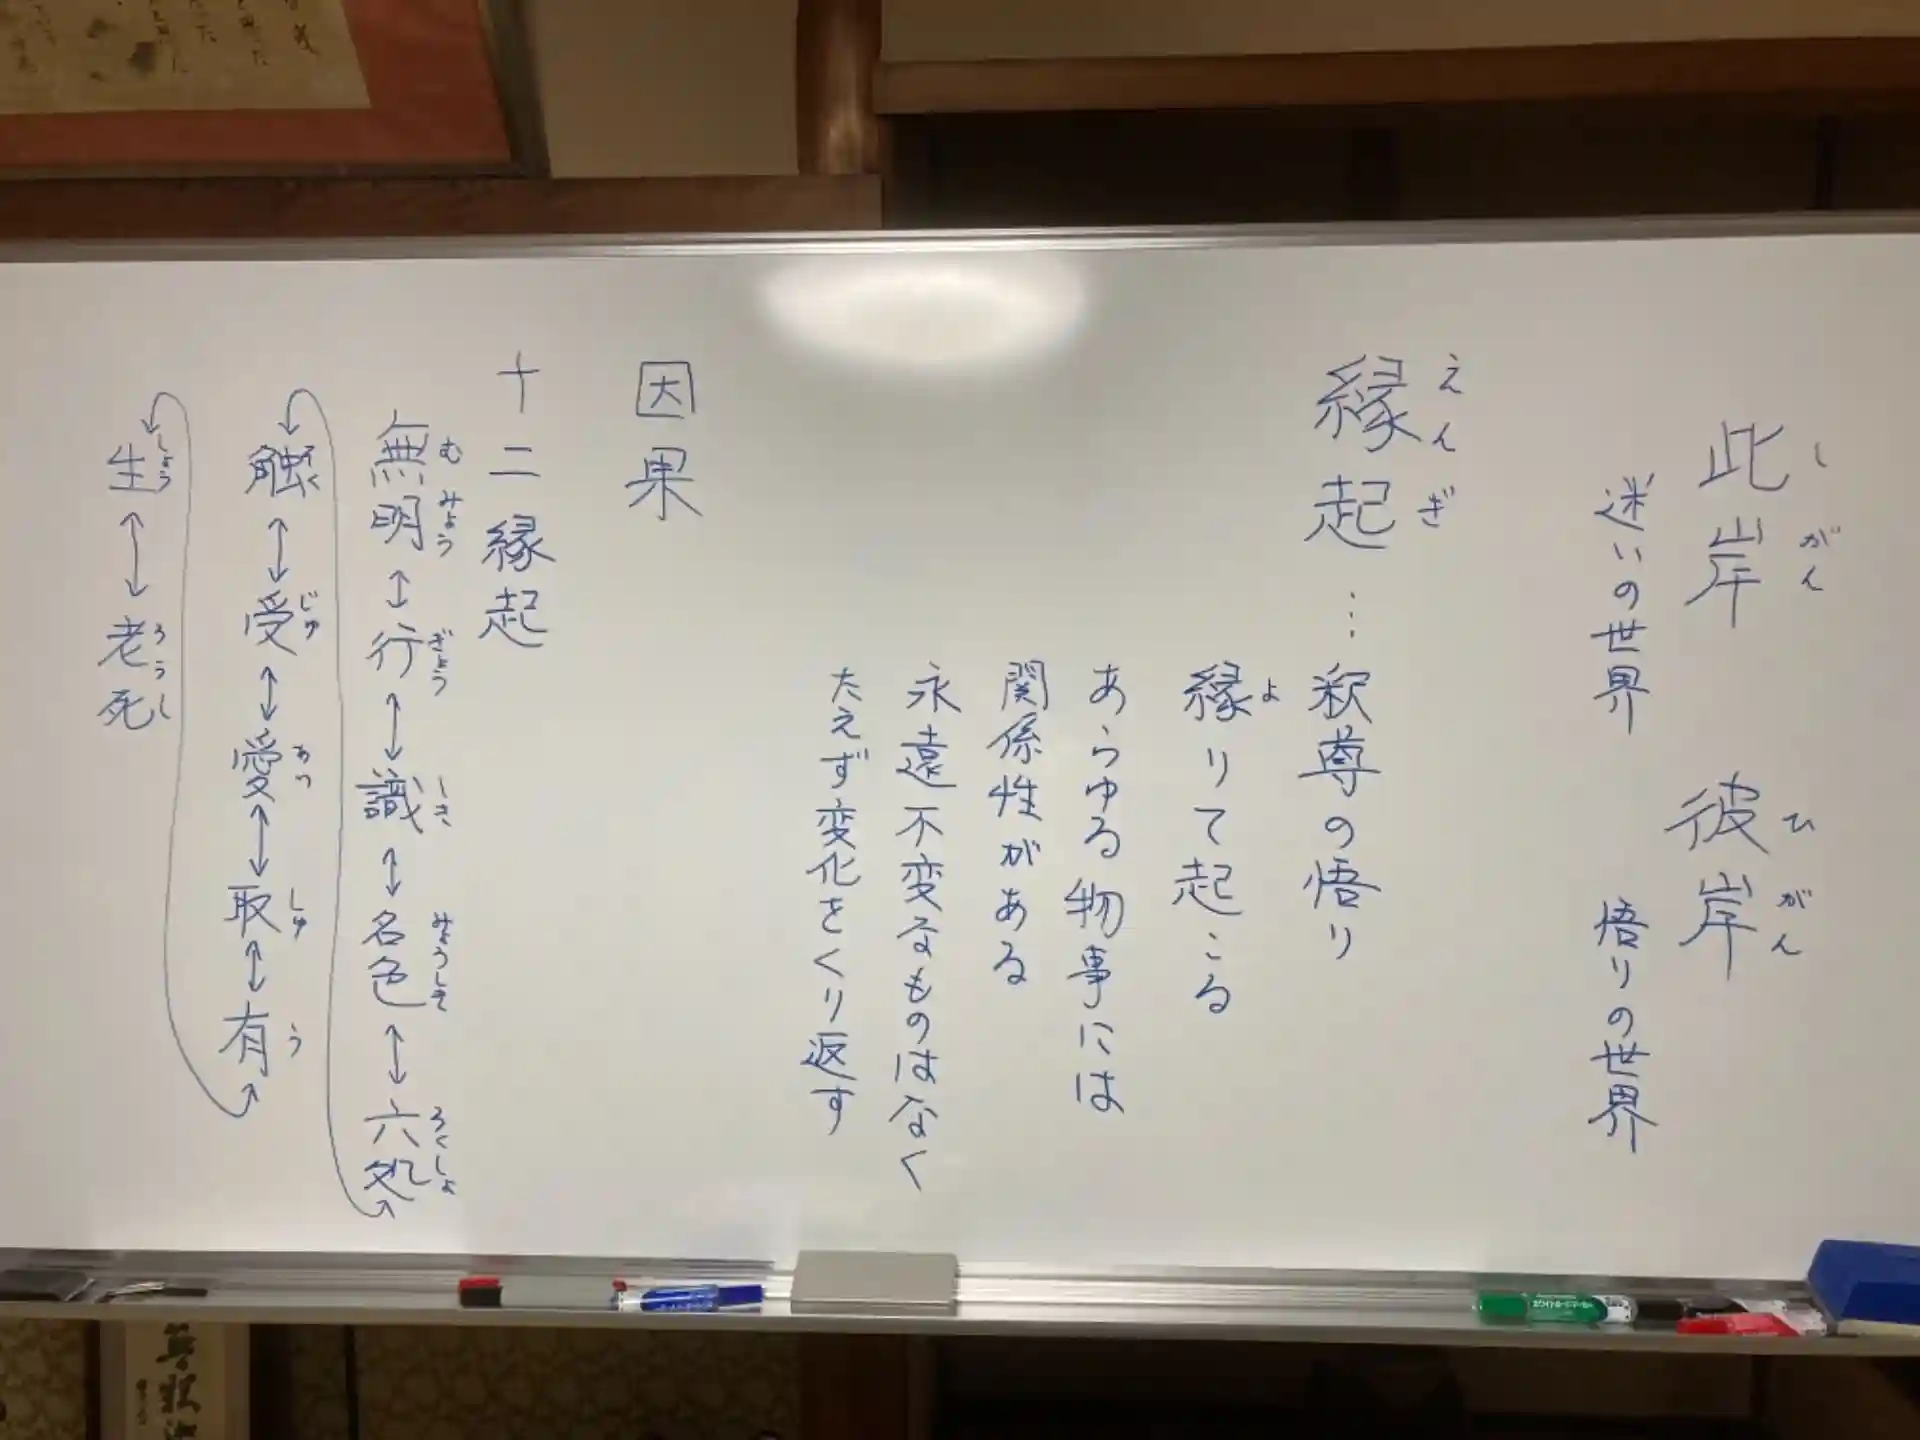 此岸 彼岸
しがん ひがん
迷いの世界 悟りの世界
えんぎ
縁起…釈尊の悟り
縁りて起こる
よ
あらゆる物事には
関係性がある
永遠不変なものはなく
たえず変化をくり返す
因果
十二縁起
無明↔行↔識↔名色↔六処
むみょう ぎょう しき みょうしき ろくしょ
触↔受↔愛↔取↔有
そく じゅ あい しゅ う
生↔老死
しょう ろうし
ホワイトボードマーカー